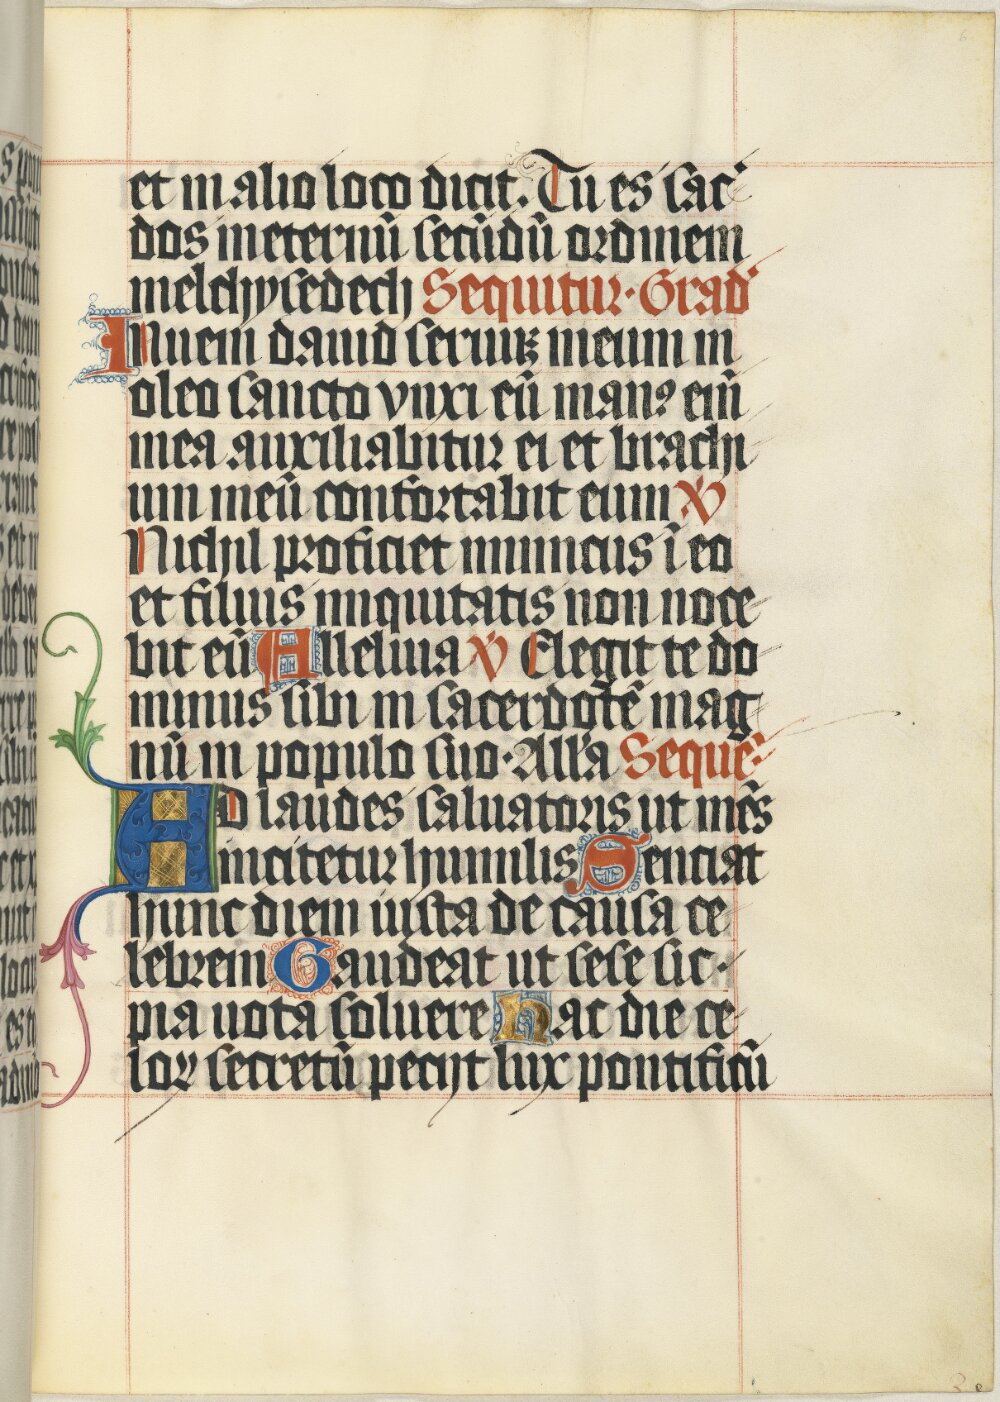 et in alio loco dicit. Tu es sac͛
dos ineternū secūdū ordinem
melchysedech Sequitur· Grad͛
Inueni dauid seruuꝫ meum in
oleo sancto vnxi eū manꝰ eim̄
mea auxiliabitur ei et brachi
um meū confortabit eum ℣
Nichil proficiet inimicus ī eo
et filius iniquitatis non noce
bit eū Alleluia ℣ Elegit te do
minus sibi in sacerdotē mag
nū in populo suo· All'a Seque͛
AD laudes saluatoris ut mēs
incitetur humilis Senciat
hunc diem iusta de causa ce
lebrem Gaudeat ut sese sic·
pia uota soluere hac die ce
loꝝ secretū pecijt lux pontificū